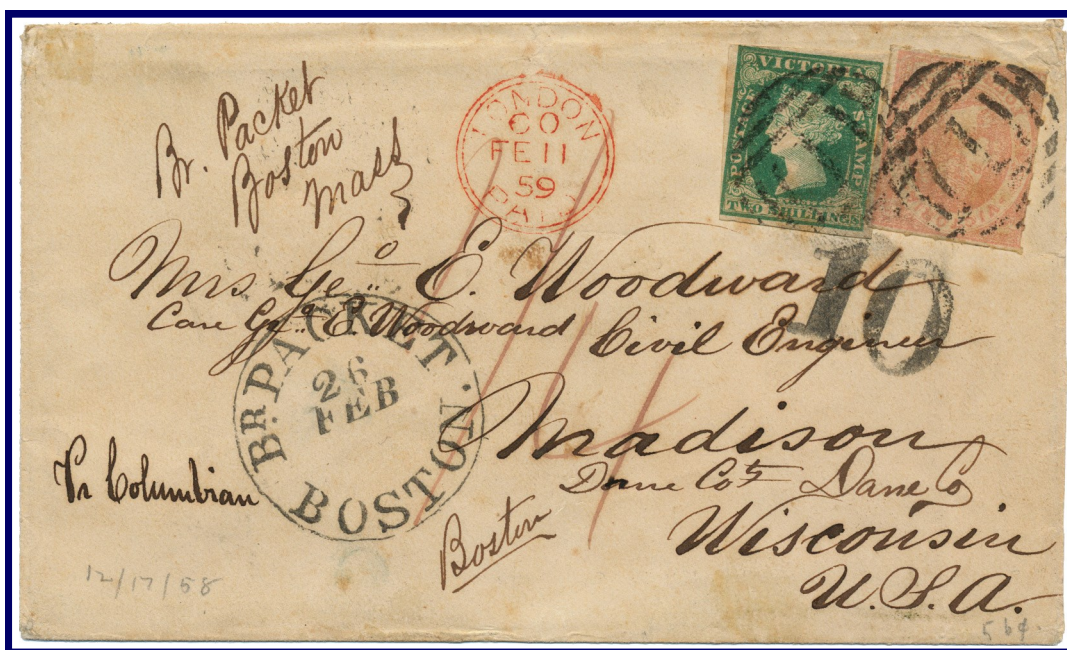 Br. Packet
Boston
Mass
LONDON
CO
FE 11
59
PAID
VICTORIA
POSTAGE STAMP
TWO SHILLINGS
10
Mrs Geo. E. Woodward
Care Geo. E. Woodward Civil Engineer
BR. PACKET.
26
FEB
BOSTON
Madison
Dane Co Dane Co
Pr Columbian
Boston
Wisconsin
U.S.A.
12/17/58
56¢